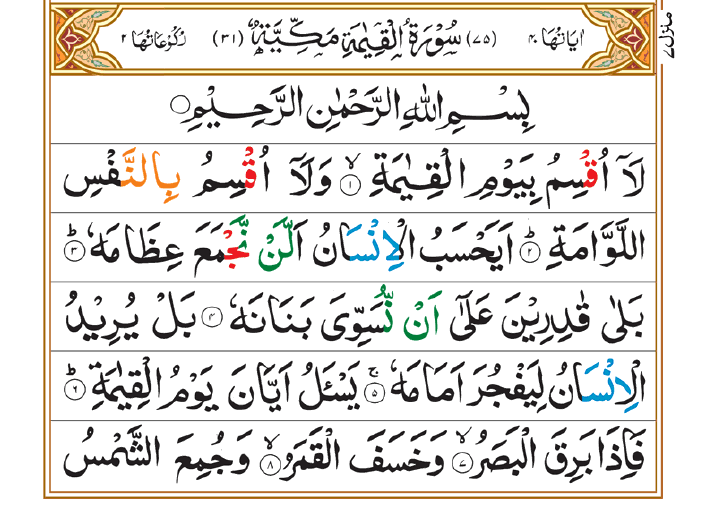 اٰیَاتُهَا ۴۰ (۷۵) سُوْرَةُ الْقِیٰمَةِ مَكِّیَّةٌ (۳۱) رُكُوْعَاتُهَا ۲
منزل ۷
بِسْمِ اللّٰهِ الرَّحْمٰنِ الرَّحِیْمِ
لَاۤ اُقْسِمُ بِیَوْمِ الْقِیٰمَةِۙ ۱ وَلَاۤ اُقْسِمُ بِالنَّفْسِ
اللَّوَّامَةِؕ ۲ اَیَحْسَبُ الْاِنْسَانُ اَلَّنْ نَّجْمَعَ عِظَامَهٗؕ ۳
بَلٰی قٰدِرِیْنَ عَلٰۤی اَنْ نُّسَوِّیَ بَنَانَهٗ ۴ بَلْ یُرِیْدُ
الْاِنْسَانُ لِیَفْجُرَ اَمَامَهٗۚ ۵ یَسْـَٔلُ اَیَّانَ یَوْمُ الْقِیٰمَةِؕ ۶
فَاِذَا بَرِقَ الْبَصَرُۙ ۷ وَخَسَفَ الْقَمَرُۙ ۸ وَجُمِعَ الشَّمْسُ